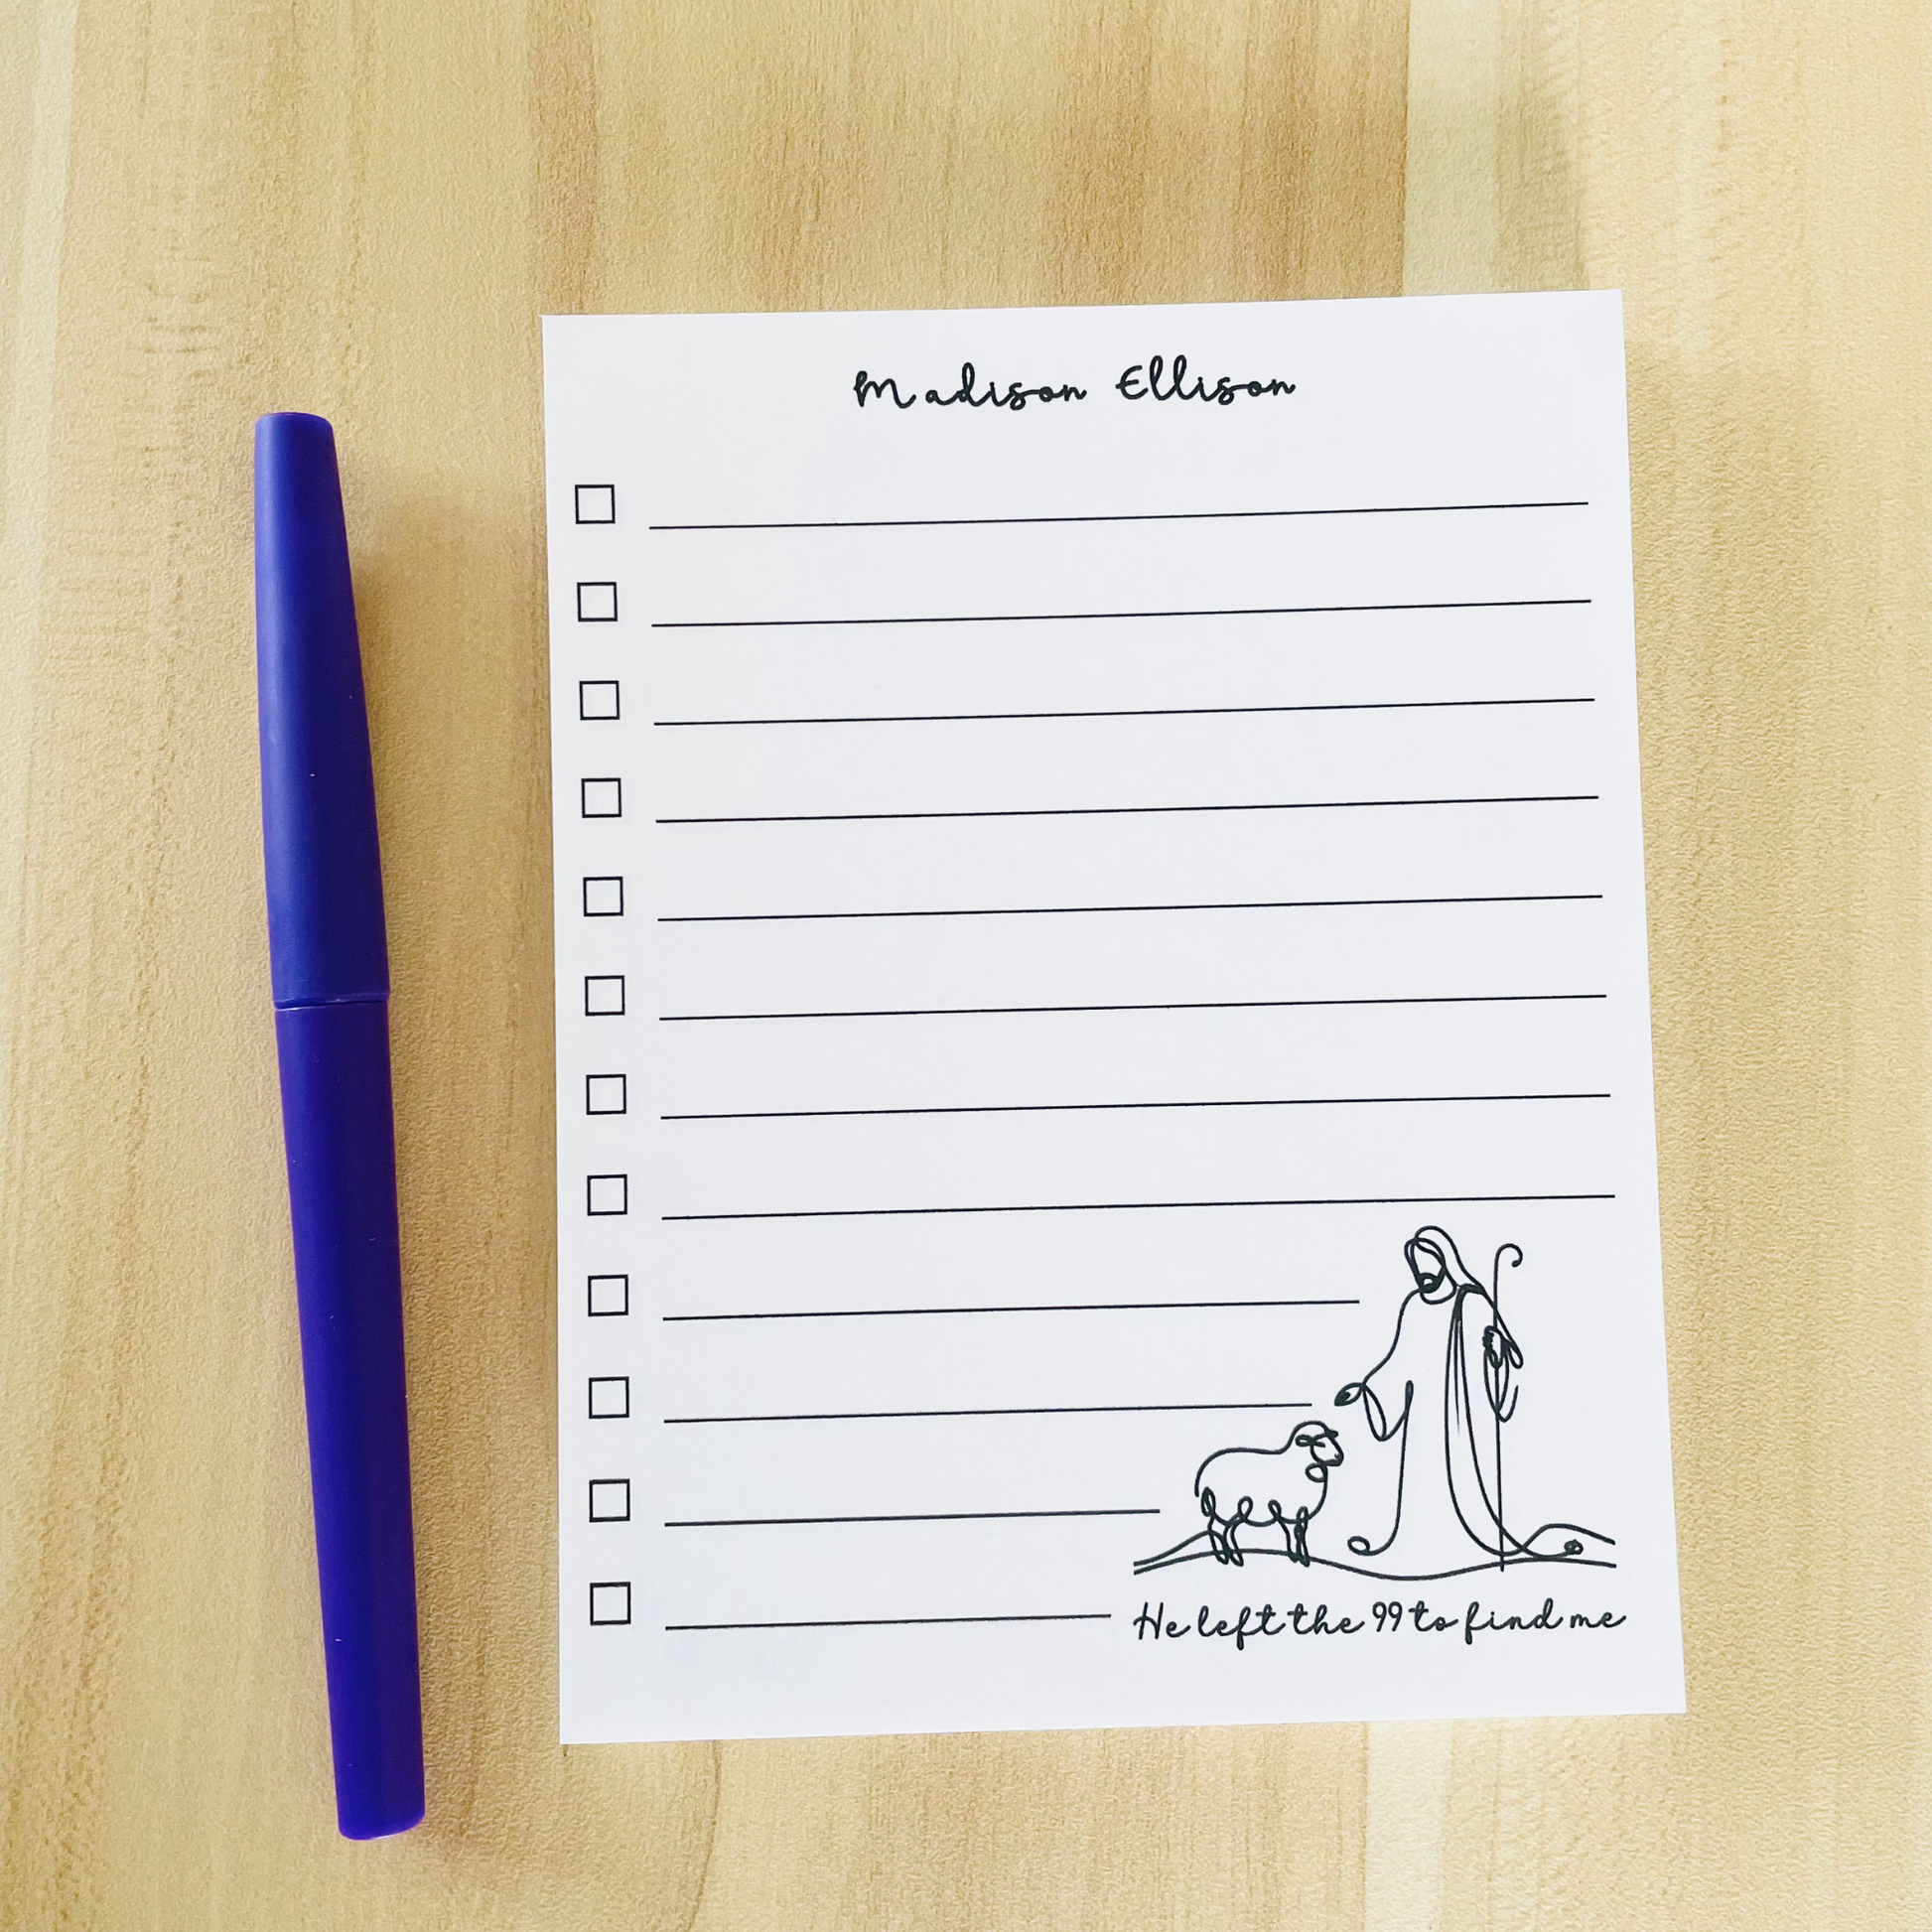 Madison Ellison
He left the 99 to find me